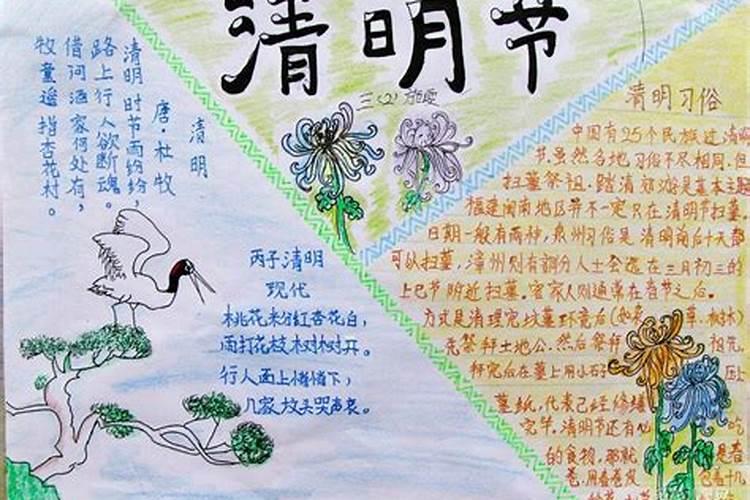 清明节
三(2)
清明
唐·杜牧
清明时节雨纷纷,
路上行人欲断魂。
借问酒家何处有,
牧童遥指杏花村。
丙子清明
现代
桃花粉红杏花白,
雨打花枝树树开。
行人面上悄悄下,
几家坟头哭声哀。
清明习俗
中国有25个民族过清明
节,虽然各地习俗不尽相同,但
扫墓祭祖、踏清郊游是基本主题
福建闽南地区并不一定只在清明节扫墓,
日期一般有两种,泉州习俗是清明前后十天都
可以扫墓,漳州则有部分人士会选在三月初三的
上巳节附近扫墓。客家人则通常在春节之后。
方式是清理完坟墓环境后(如杂草、树木)
先祭拜土地公,然后祭拜祖先,
祭完后在墓上用小石压上
墓纸,代表已经修缮
完毕。清明节还有吃的
的食物,那就是春
卷,用春卷皮包着十几